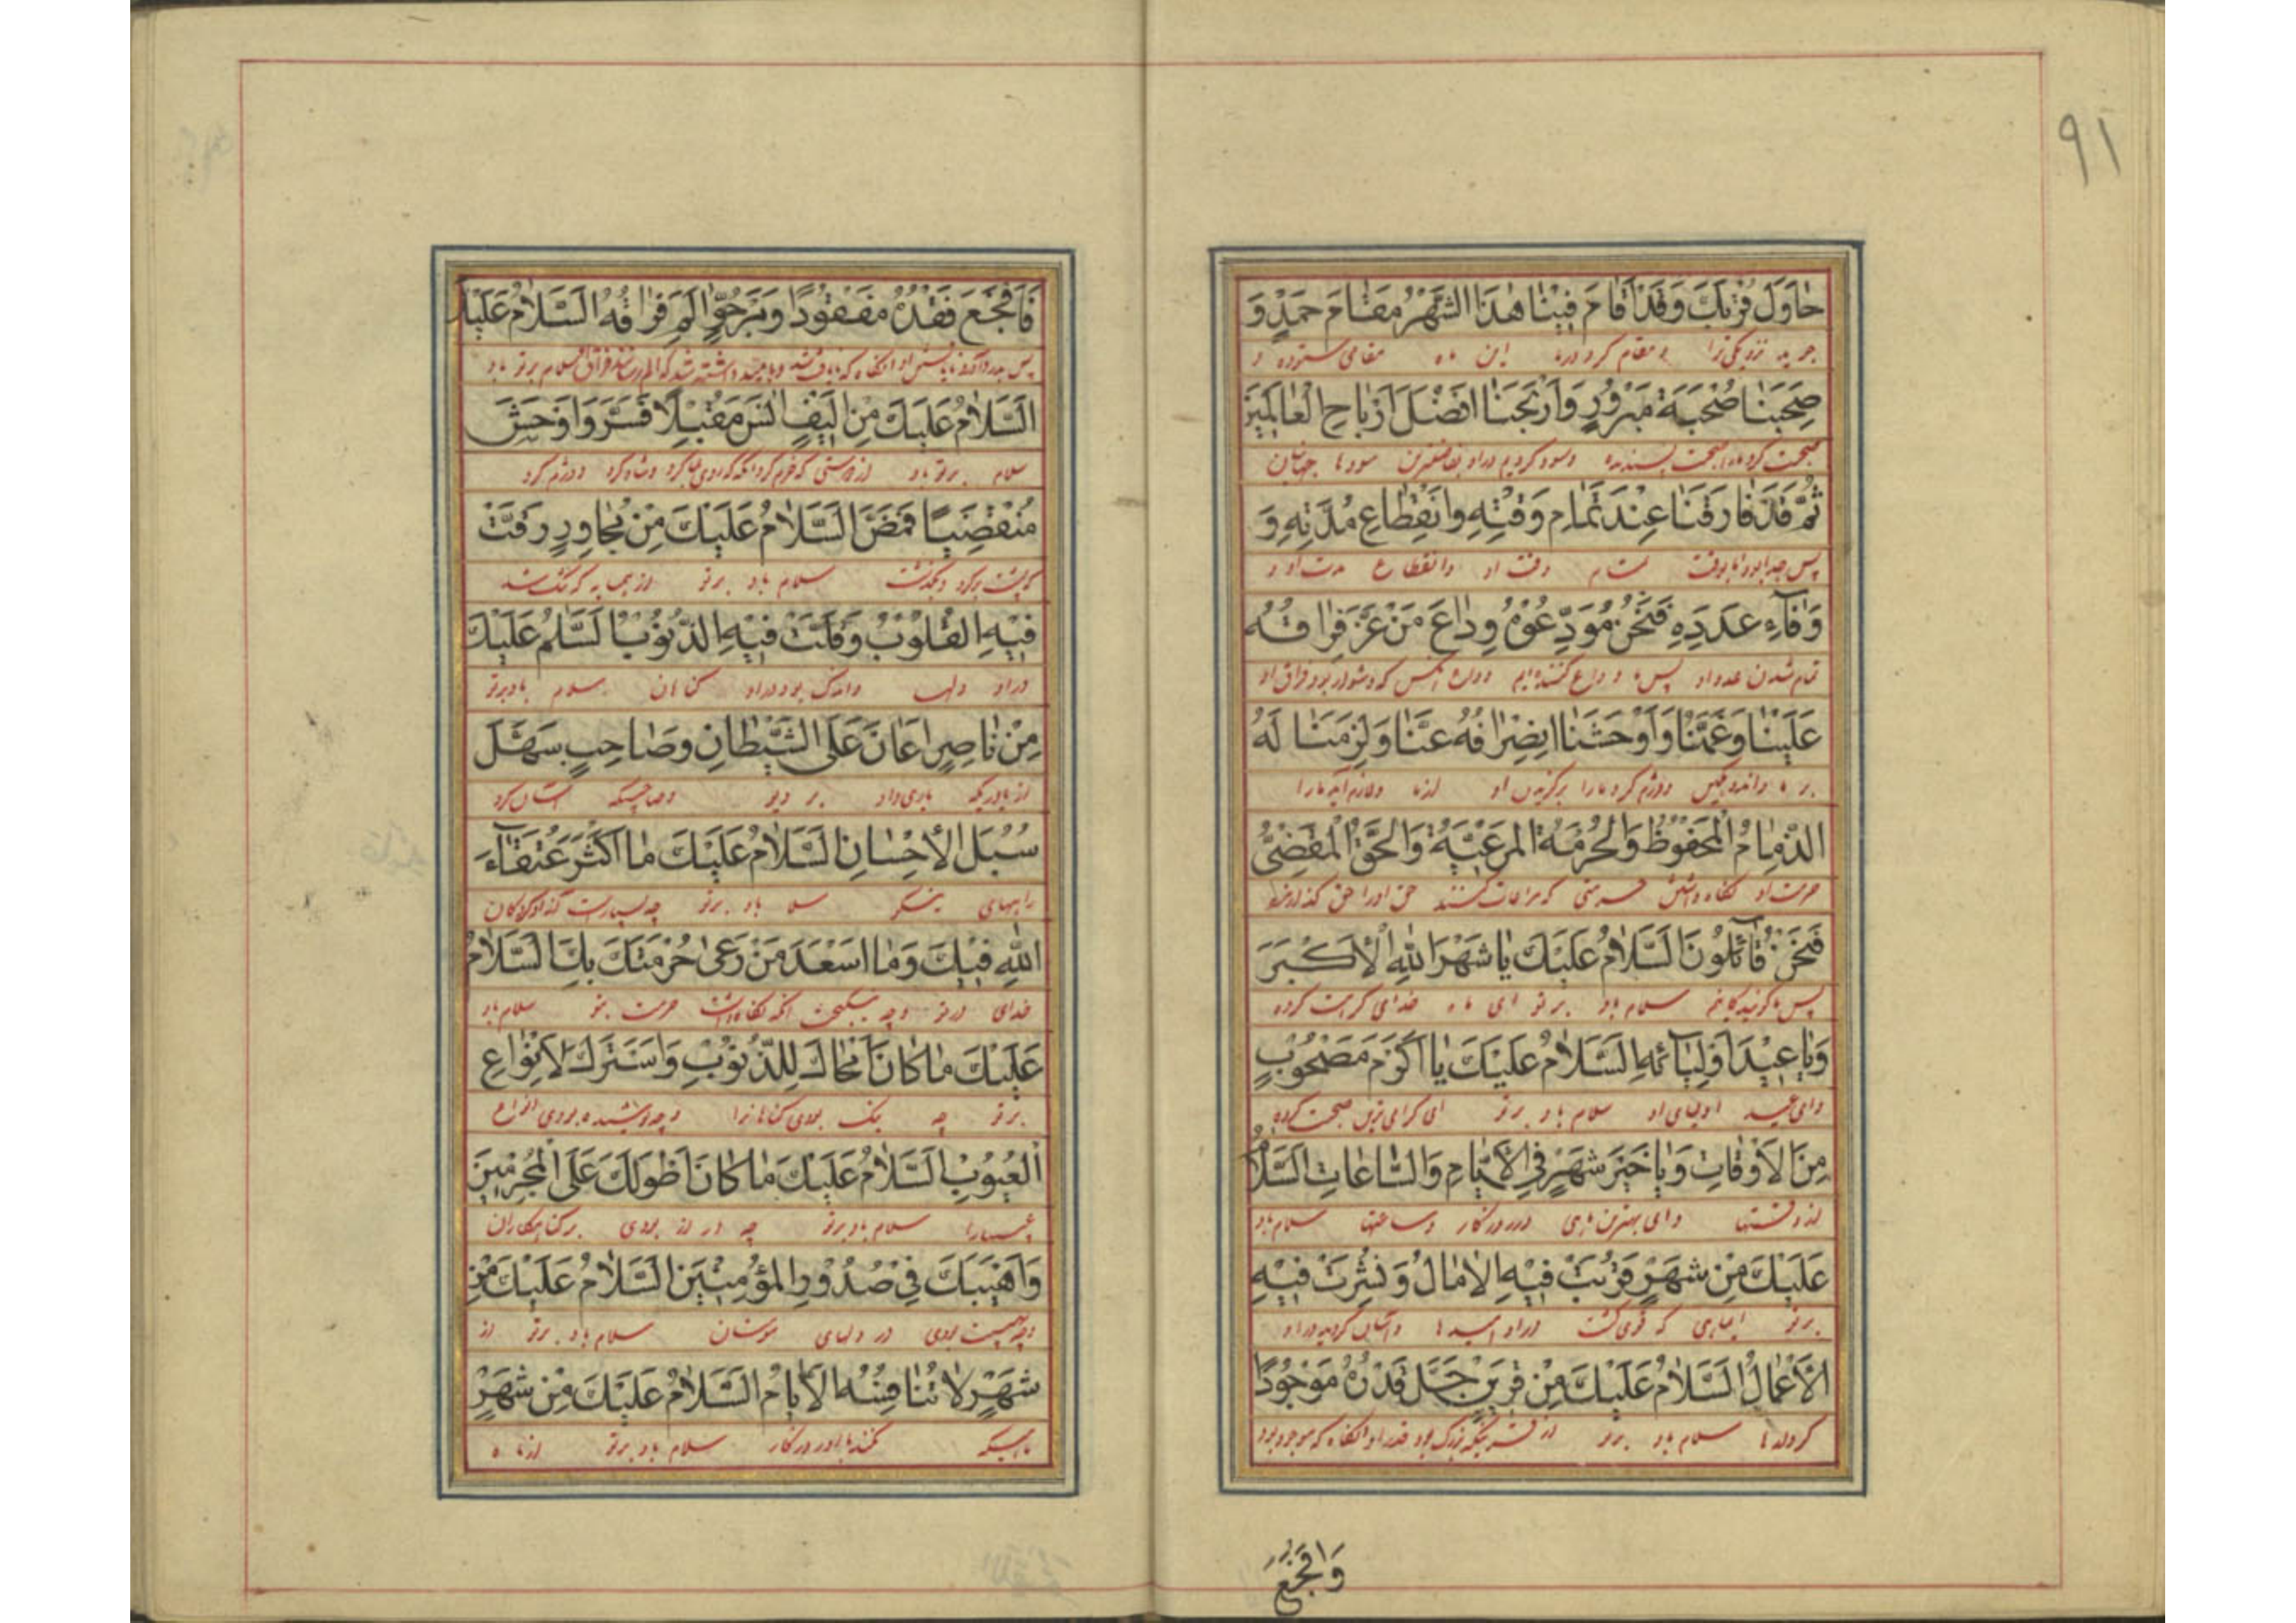 ٩١
حاوَلَ قُرْبَكَ وَقَدْ اَقامَ فِيْنا هٰذَا الشَّهْرُ مَقامَ حَمْدٍ وَ
جوید نزدیکی ترا و مقام کرد در ما این ماه مقامی ستوده و
صَحِبَنا صُحْبَةَ مَبْرُورٍ وَاَرْبَحَنا اَفْضَلَ اَرْباحِ الْعالَمِيْنَ
صحبت کرد ما را صحبت پسندیده وسود کردیم در او بفاضلترین سودها جهانیان
ثُمَّ قَدْ فارَقَنا عِنْدَ تَمامِ وَقْتِهِ وَانْقِطاعِ مُدَّتِهِ وَ
پس جدا بود از ما بوقت تمام وقت او وانقطاع مدت او و
وَفآءِ عَدَدِهِ فَنَحْنُ مُوَدِّعُوْهُ وِداعَ مَنْ عَزَّ فِراقُهُ
تمام شدن عدد او پس ما وداع کننده‌ایم وداع آنکس که دشوار بود فراق او
عَلَيْنا وَغَمَّنا وَاَوْحَشَنا انْصِرافُهُ عَنَّا وَلَزِمَنا لَهُ
بر ما واندوهگین ودژم کرد ما را برگردیدن او از ما ولازم آید ما را
الذِّمامُ الْمَحْفُوْظُ وَالْحُرْمَةُ الْمَرْعِيَّةُ وَالْحَقُّ الْمَقْضِيُّ
حرمت او نگاه داشتن حرمتی که مراعات کنند حق او را حق گذارده
فَنَحْنُ قآئِلُونَ السَّلامُ عَلَيْكَ يا شَهْرَ اللهِ الْاَكْبَرَ
پس ما گویندگانیم سلام باد بر تو ای ماه خدای
وَيا عِيْدَ اَوْلِيآئِهِ السَّلامُ عَلَيْكَ يا اَكْرَمَ مَصْحُوْبٍ
وای عید اولیای او سلام باد بر تو ای گرامی ترین صحبت کرده
مِنَ الْاَوْقاتِ وَيا خَيْرَ شَهْرٍ فِي الْاَيّامِ وَالسّاعاتِ السَّلامُ
از وقتها وای بهترین ماهی در روزگار وساعتها سلام باد
عَلَيْكَ مِنْ شَهْرٍ قَرُبَتْ فِيْهِ الْآمالُ وَنُشِرَتْ فِيْهِ
بر تو از ماهی که در او امیدها وآسان گردید در او
الْاَعْمالُ السَّلامُ عَلَيْكَ مِنْ قَرِيْنٍ جَلَّ قَدْرُهُ مَوْجُوْدًا
کردارها سلام باد بر تو از قرینیکه بزرگ بود قدر او آنگاه که موجود بود
وَاَفْجَعَ
فَاَفْجَعَ فَقْدُهُ مَفْقُوْدًا وَمَرْجُوٍّ اٰلَمَ فِراقُهُ السَّلامُ عَلَيْكَ
سلام بر تو باد
السَّلامُ عَلَيْكَ مِنْ اَلِيْفٍ اٰنَسَ مُقْبِلًا فَسَرَّ وَاَوْحَشَ
سلام بر تو باد از دوستی که خرم کرد آنگه که روی فرا کرد وشاد کرد ودژم کرد
مُنْقَضِيًا فَمَضَّ السَّلامُ عَلَيْكَ مِنْ مُجاوِرٍ رَقَّتْ
که پشت بر کرد وبگذشت سلام باد بر تو از همسایه که تنک شد
فِيْهِ الْقُلُوْبُ وَقَلَّتْ فِيْهِ الذُّنُوْبُ السَّلامُ عَلَيْكَ
در او دلها واندک بود در او گناهان سلام باد بر تو
مِنْ ناصِرٍ اَعانَ عَلَى الشَّيْطانِ وَصاحِبٍ سَهَّلَ
از یاوریکه یاری داد بر دیو وصاحبیکه آسان کرد
سُبُلَ الْاِحْسانِ السَّلامُ عَلَيْكَ ما اَكْثَرَ عُتَقآءَ
راههای نیکی سلام باد بر تو چه بسیارست آزادکردگان
اللهِ فِيْكَ وَما اَسْعَدَ مَنْ رَعى حُرْمَتَكَ بِكَ السَّلامُ
خدای در تو وچه نیکبخت آنکه نگاه داشت حرمت بتو سلام باد
عَلَيْكَ ما كانَ اَمْحاكَ لِلذُّنُوْبِ وَاَسْتَرَكَ لِاَنْواعِ
بر تو چه نیک بودی گناهانرا وچه پوشیده بودی انواع
الْعُيُوْبِ السَّلامُ عَلَيْكَ ما كانَ اَطْوَلَكَ عَلَى الْمُجْرِمِيْنَ
عیبها را سلام باد بر تو چه دراز بودی بر گناهکاران
وَاَهْيَبَكَ فِيْ صُدُوْرِ الْمُؤْمِنِيْنَ السَّلامُ عَلَيْكَ مِنْ
وچه بهیبت بودی در دلهای مومنان سلام باد بر تو از
شَهْرٍ لا تُنافِسُهُ الْاَيّامُ السَّلامُ عَلَيْكَ مِنْ شَهْرٍ
ماهیکه روزگار سلام باد بر تو از ماه